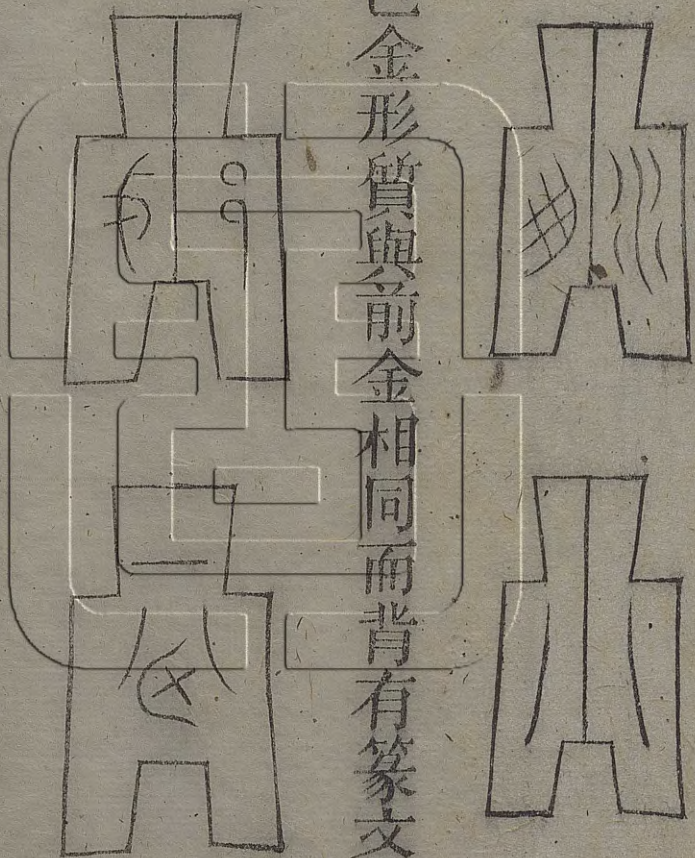 金形質與前金相同而背有篆文